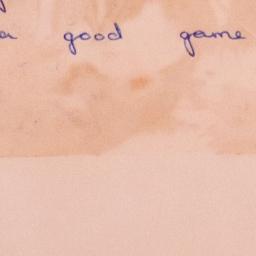 a good game